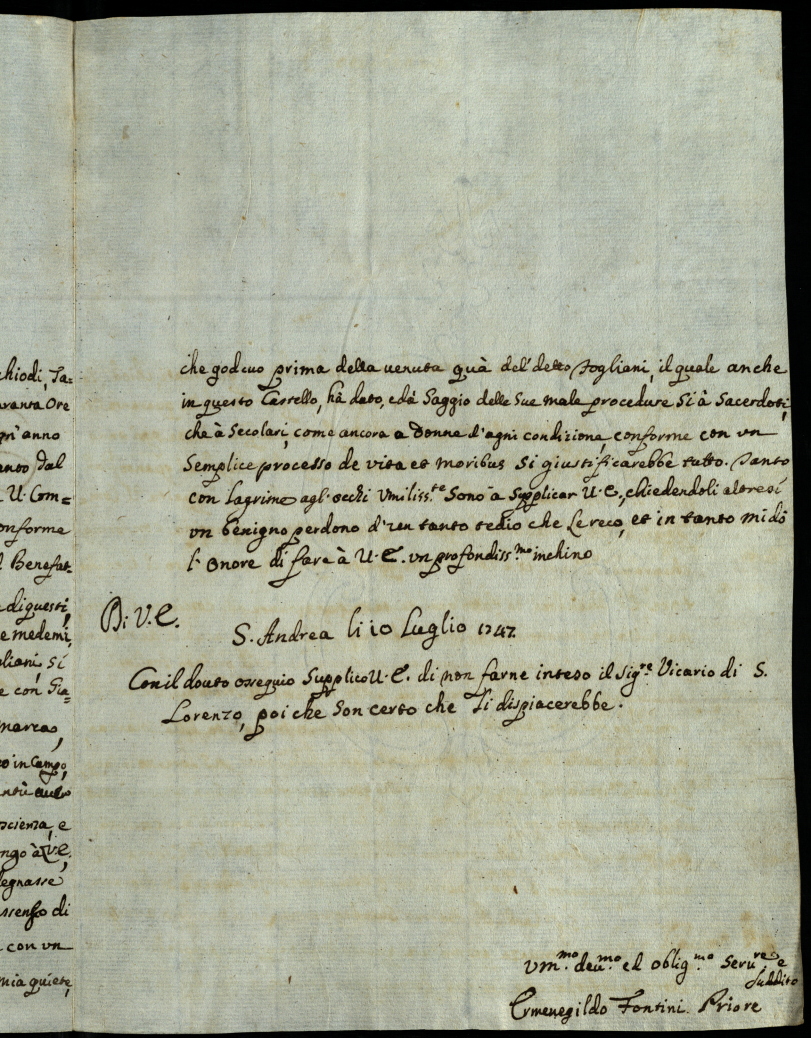 chiodi, Ta=
aranta Ore
gn' anno
anto dal
U. Com=
onforme
l Benefat=
e di questi,
e medemi,
gliani, Si
e con Gia=
marcao,
o in Campo,
scienza, e
ngo à V.E.,
egnasse
ssenso di
con vn
mia quiete,
che godeuo prima della uenuta quà del' detto Fogliani, il quale anche
in questo Castello, hà dato, e dà Saggio delle Sue male procedure Si à Sacerdoti,
che à Secolari, come ancora a Donne d'agni condizione, conforme con vn
Semplice processo de vita et moribus Si giustificarebbe tutto. Tanto
con Lagrime agl' occhi Vmiliss.te Sono à Supplicar U.E., chiedendoli altresi
vn benigno perdono d'vn tanto tedio che Le reco, et in tanto mi dò
l' Onore di fare à U.E. vn profondiss.mo inchino
Di V.E.
S. Andrea li 10 Luglio 1747
Con il douto ossequio Supplico U.E. di non farne inteso il Sig.re Vicario di S.
Lorenzo, poi che Son certo che Li dispiacerebbe.
Vm.mo deu.mo ed oblig.mo Seru.re e
Suddito
Ermenegildo Fontini Priore